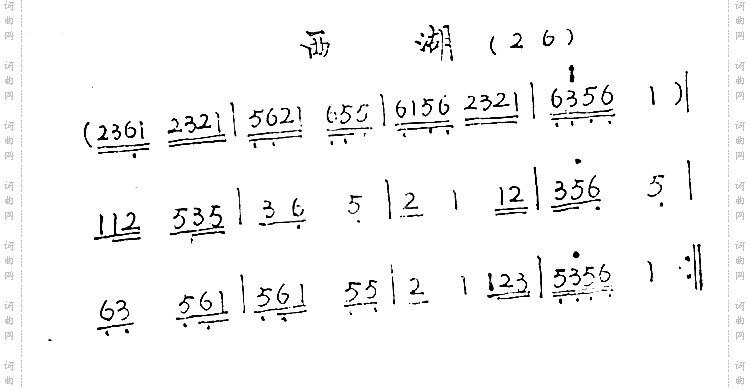 西 湖 (26)
(2361 2321 | 5621 655 | 6156 2321 | 6356 1 ) |
112 535 | 3 6 5 | 2 1 12 | 356 5 |
63 561 | 561 55 | 2 1 123 | 5356 1 :||
词曲网 词曲网 词曲网 词曲网 词曲网 词曲网 词
词曲网 词曲网 词曲网 词曲网 词曲网 词曲网 词